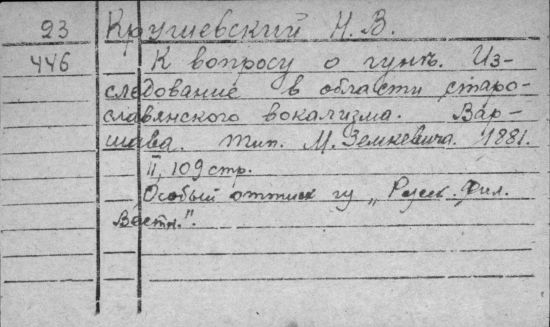 23 Крушевский Н. В.
446 К вопросу о гунѣ. Из-
следование в области старо-
славянского вокализма. Вар-
шава. Тип. М. Земкевича. 1881.
II, 109 стр.
Особый оттиск из „Русск. Фил.
Вестн.".